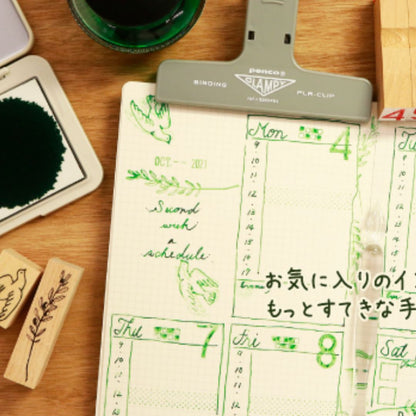 penco®
CLAMPY
BINDING
PLA-CLIP
OCT.-- 2021
Second
week
a
schedule
Mon 4
9
10
11
12
13
14
15
16
17
お気に入りのイ
もっとすてきな手
Thu 7
9
10
11
12
Fri 8
9
10
11
12
Sat